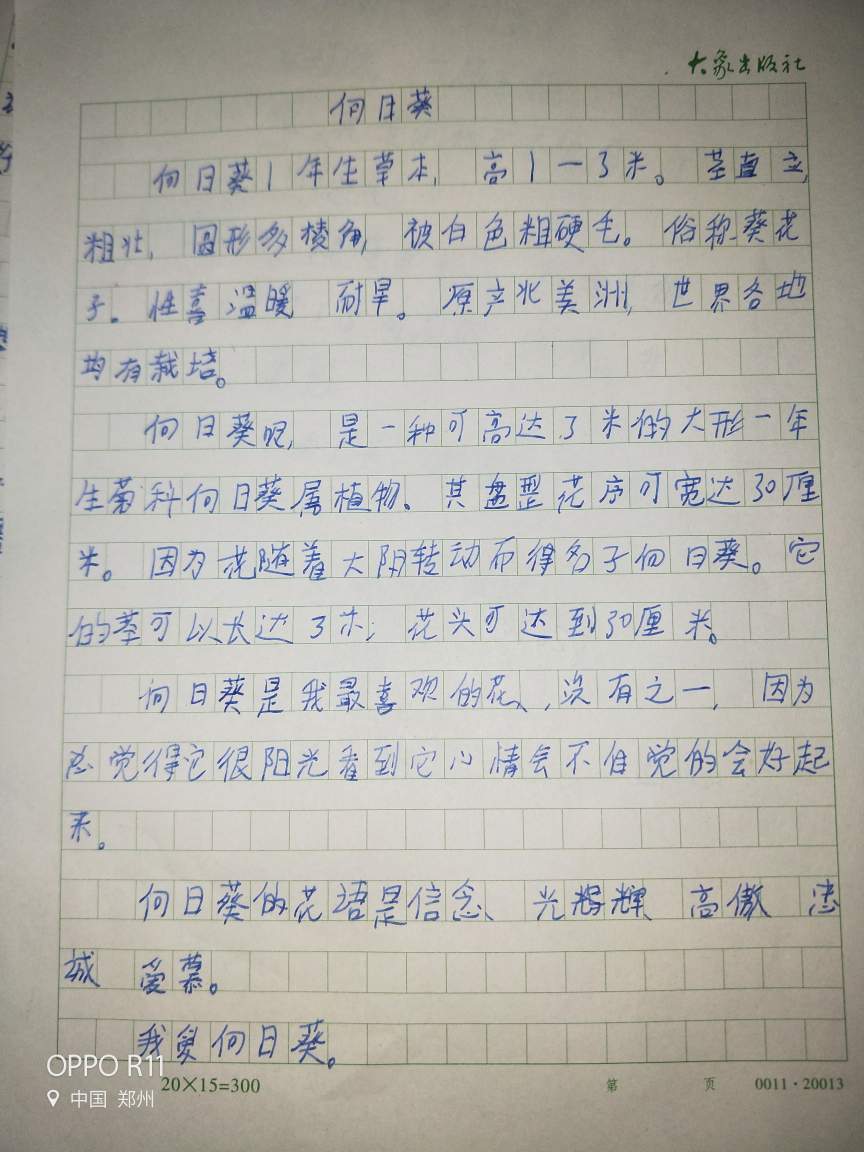 大象出版社
向日葵
向日葵1年生草本，高1一3米。茎直立，
粗壮，圆形多棱角，被白色粗硬毛。俗称葵花
子。性喜温暖 耐旱。原产北美洲，世界各地
均有栽培。
向日葵呢，是一种可高达3米的大形一年
生菊科向日葵属植物。其盘型花序可宽达30厘
米。因为花随着大阴转动而得名子向日葵。它
的茎可以长达3木；花头可达到30厘米。
向日葵是我最喜欢的花、，没有之一，因为
总觉得它很阳光看到它心情会不自觉的会好起
来。
向日葵的花语是信念、光辉 高傲 忠
城 爱慕。
我爱向日葵。
OPPO R11
中国 郑州
20×15=300
第 页 0011·20013